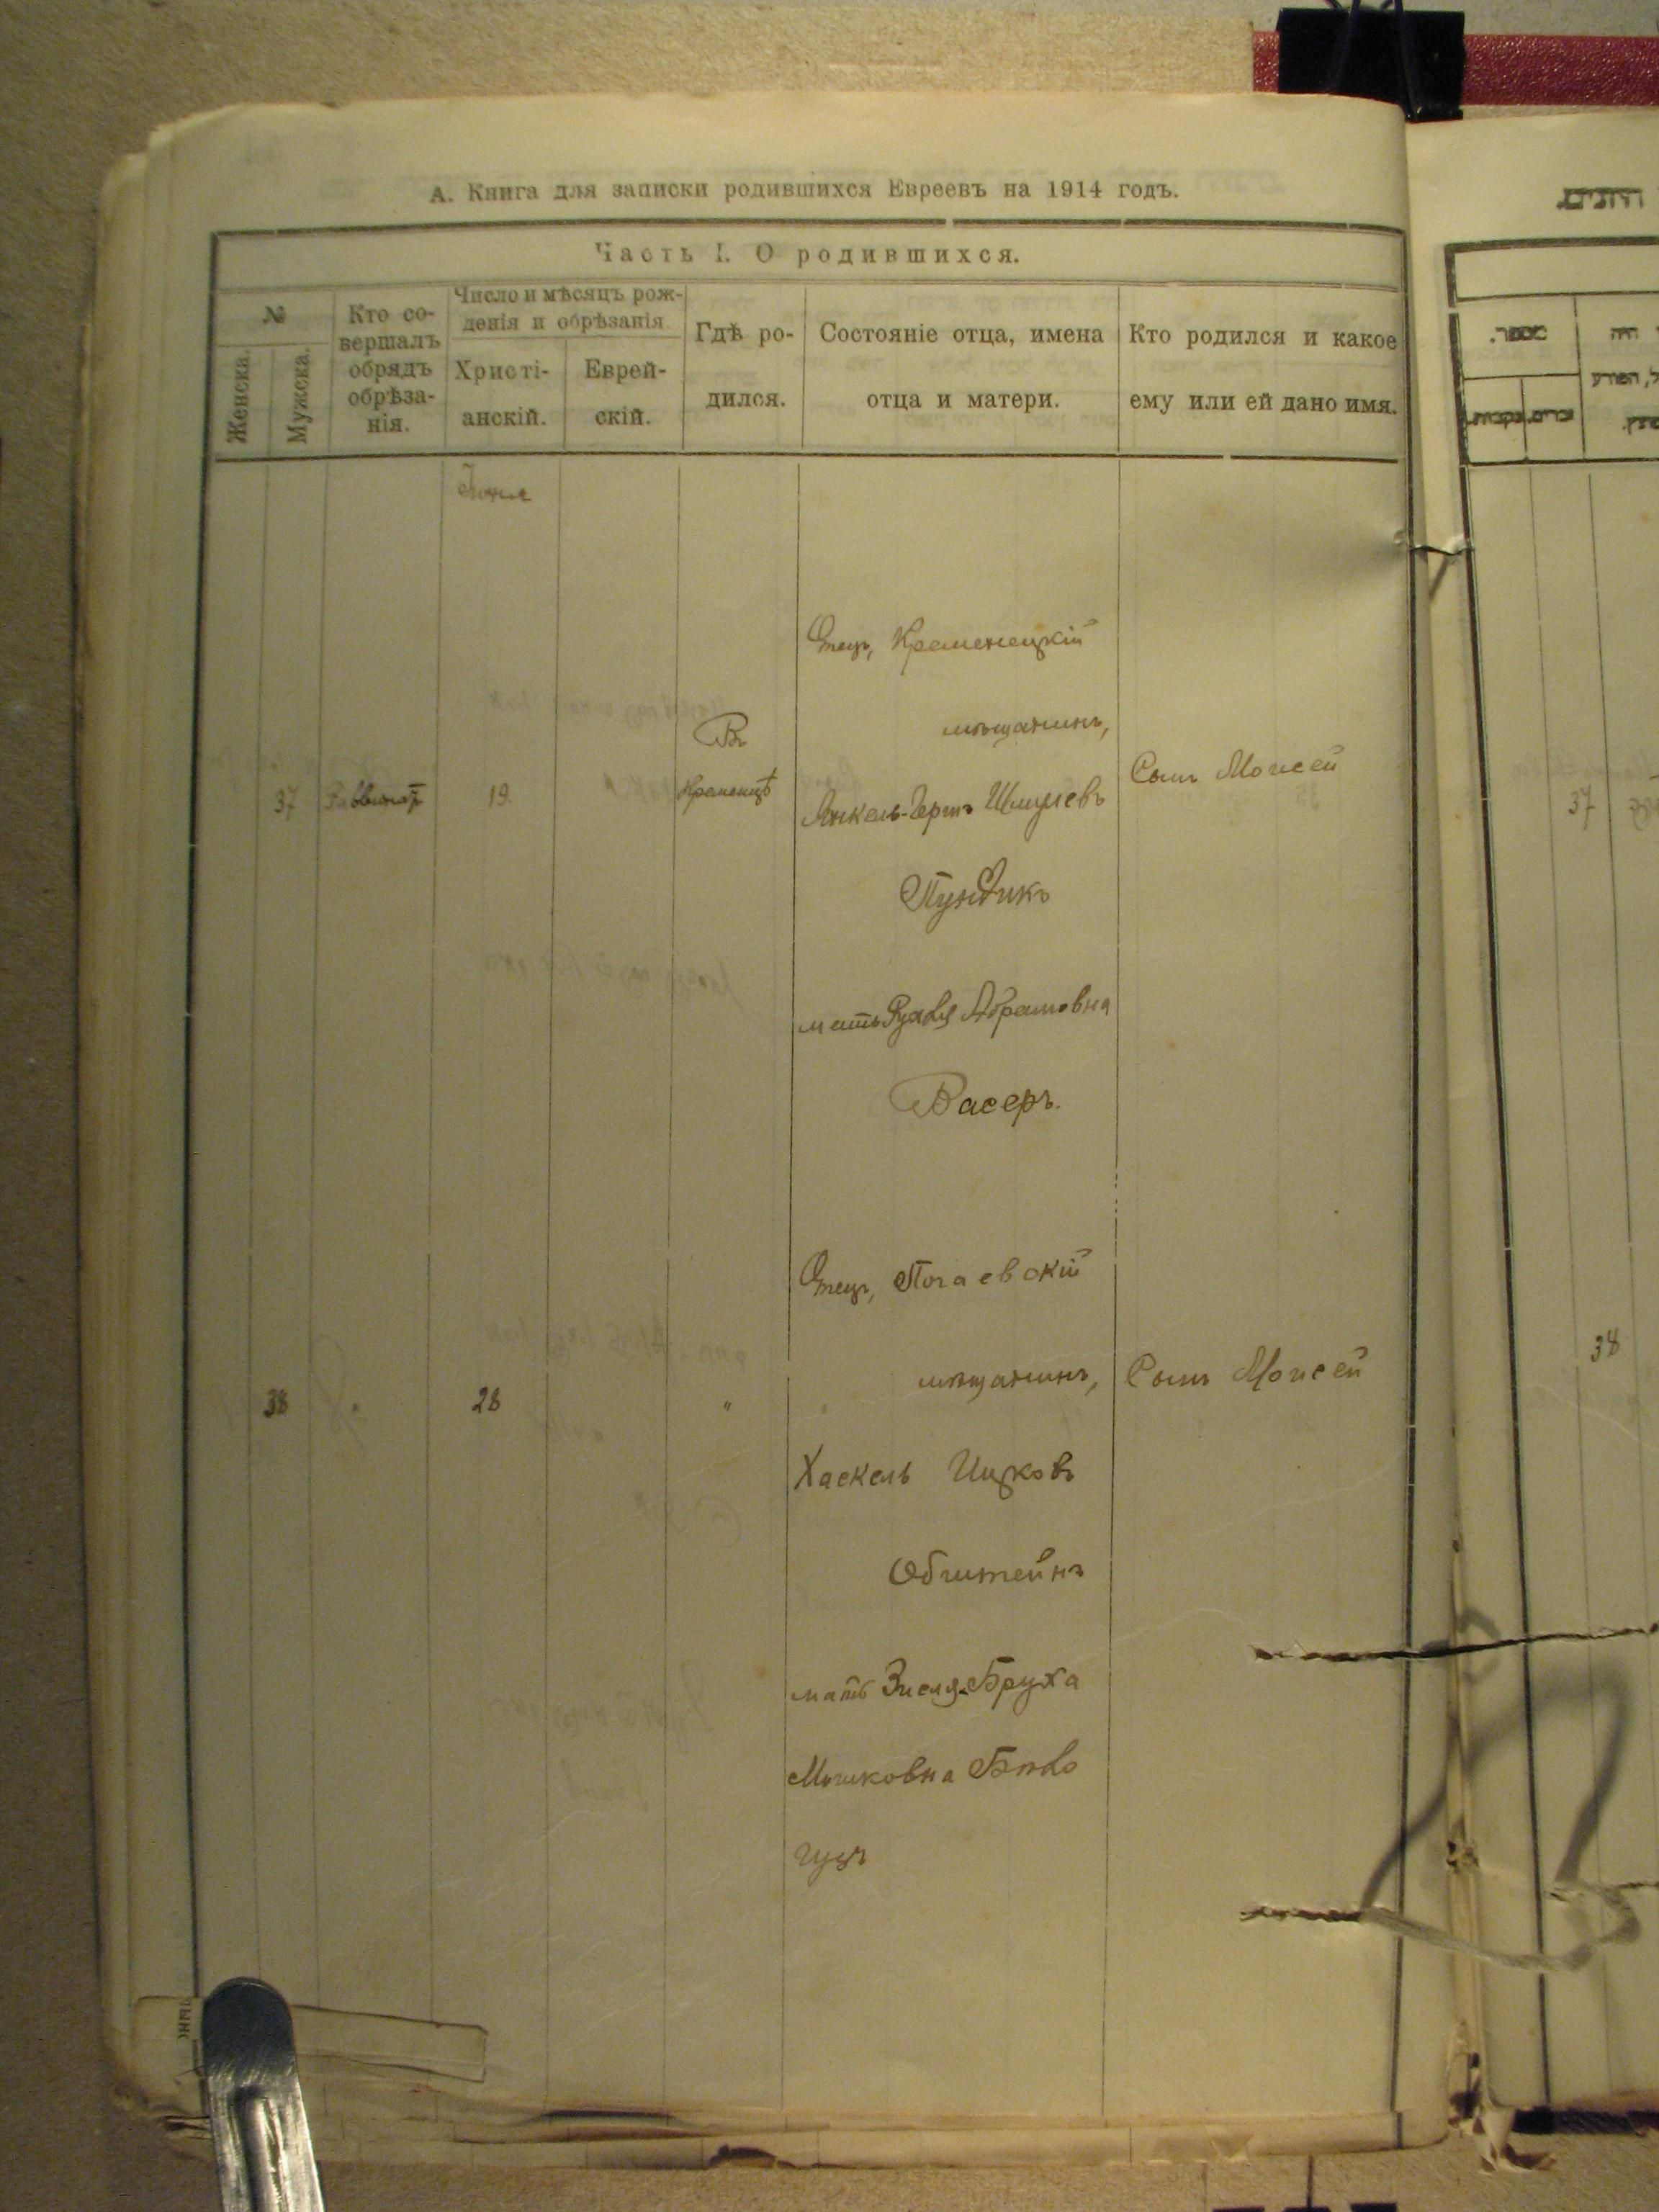 А. Книга для записки родившихся Евреевъ на 1914 годъ.
Часть I. О родившихся.
№
Женска.
Мужска.
Кто со-
вершалъ
обрядъ
обрѣза-
нія.
Число и мѣсяцъ рож-
денія и обрѣзанія.
Христі-
анскій.
Еврей-
скій.
Гдѣ ро-
дился.
Состояніе отца, имена
отца и матери.
Кто родился и какое
ему или ей дано имя.
37
19.
Въ
Кременцѣ
Отецъ, Кременецкій
мѣщанинъ,
Янкель-Гершъ Шмулевъ
Пундикъ
мать Рухля Абрамовна
Васеръ.
Сынъ Моисей
38
"
28
"
Отецъ, Почаевскій
мѣщанинъ,
Хаскель Ицковъ
Обштейнъ
мать Зисля-Бруха
Мошковна
Сынъ Моисей
37
38